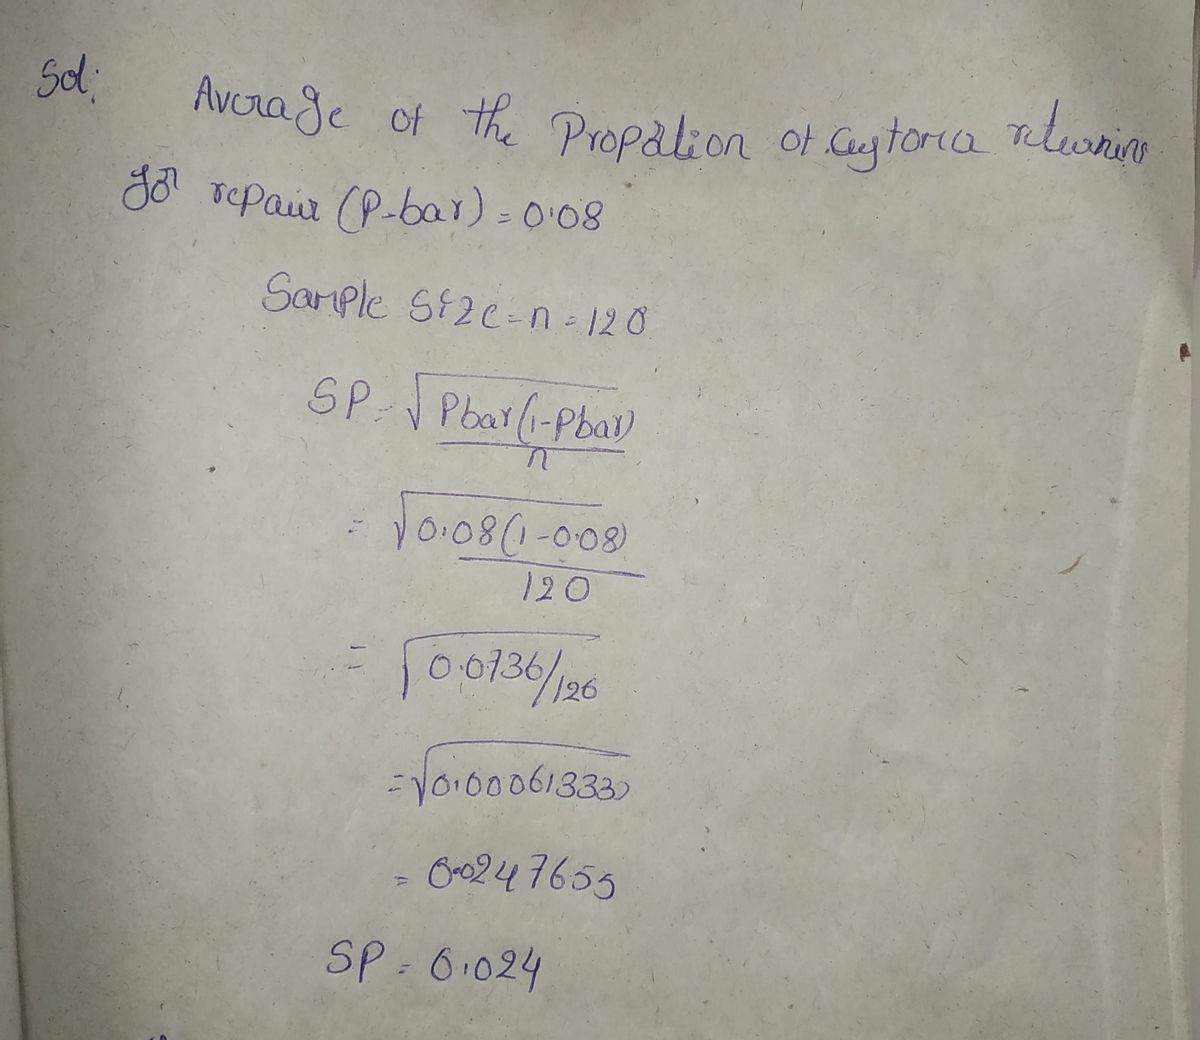 Sol:
Average of the Propotion of Customa returning
for repair (P-bar) = 0.08
Sample size = n = 120
SP = √Pbar(1-Pbar)
n
= √0.08(1-0.08)
120
= √0.0736/120
= √0.000613333
= 0.0247655
SP = 0.024